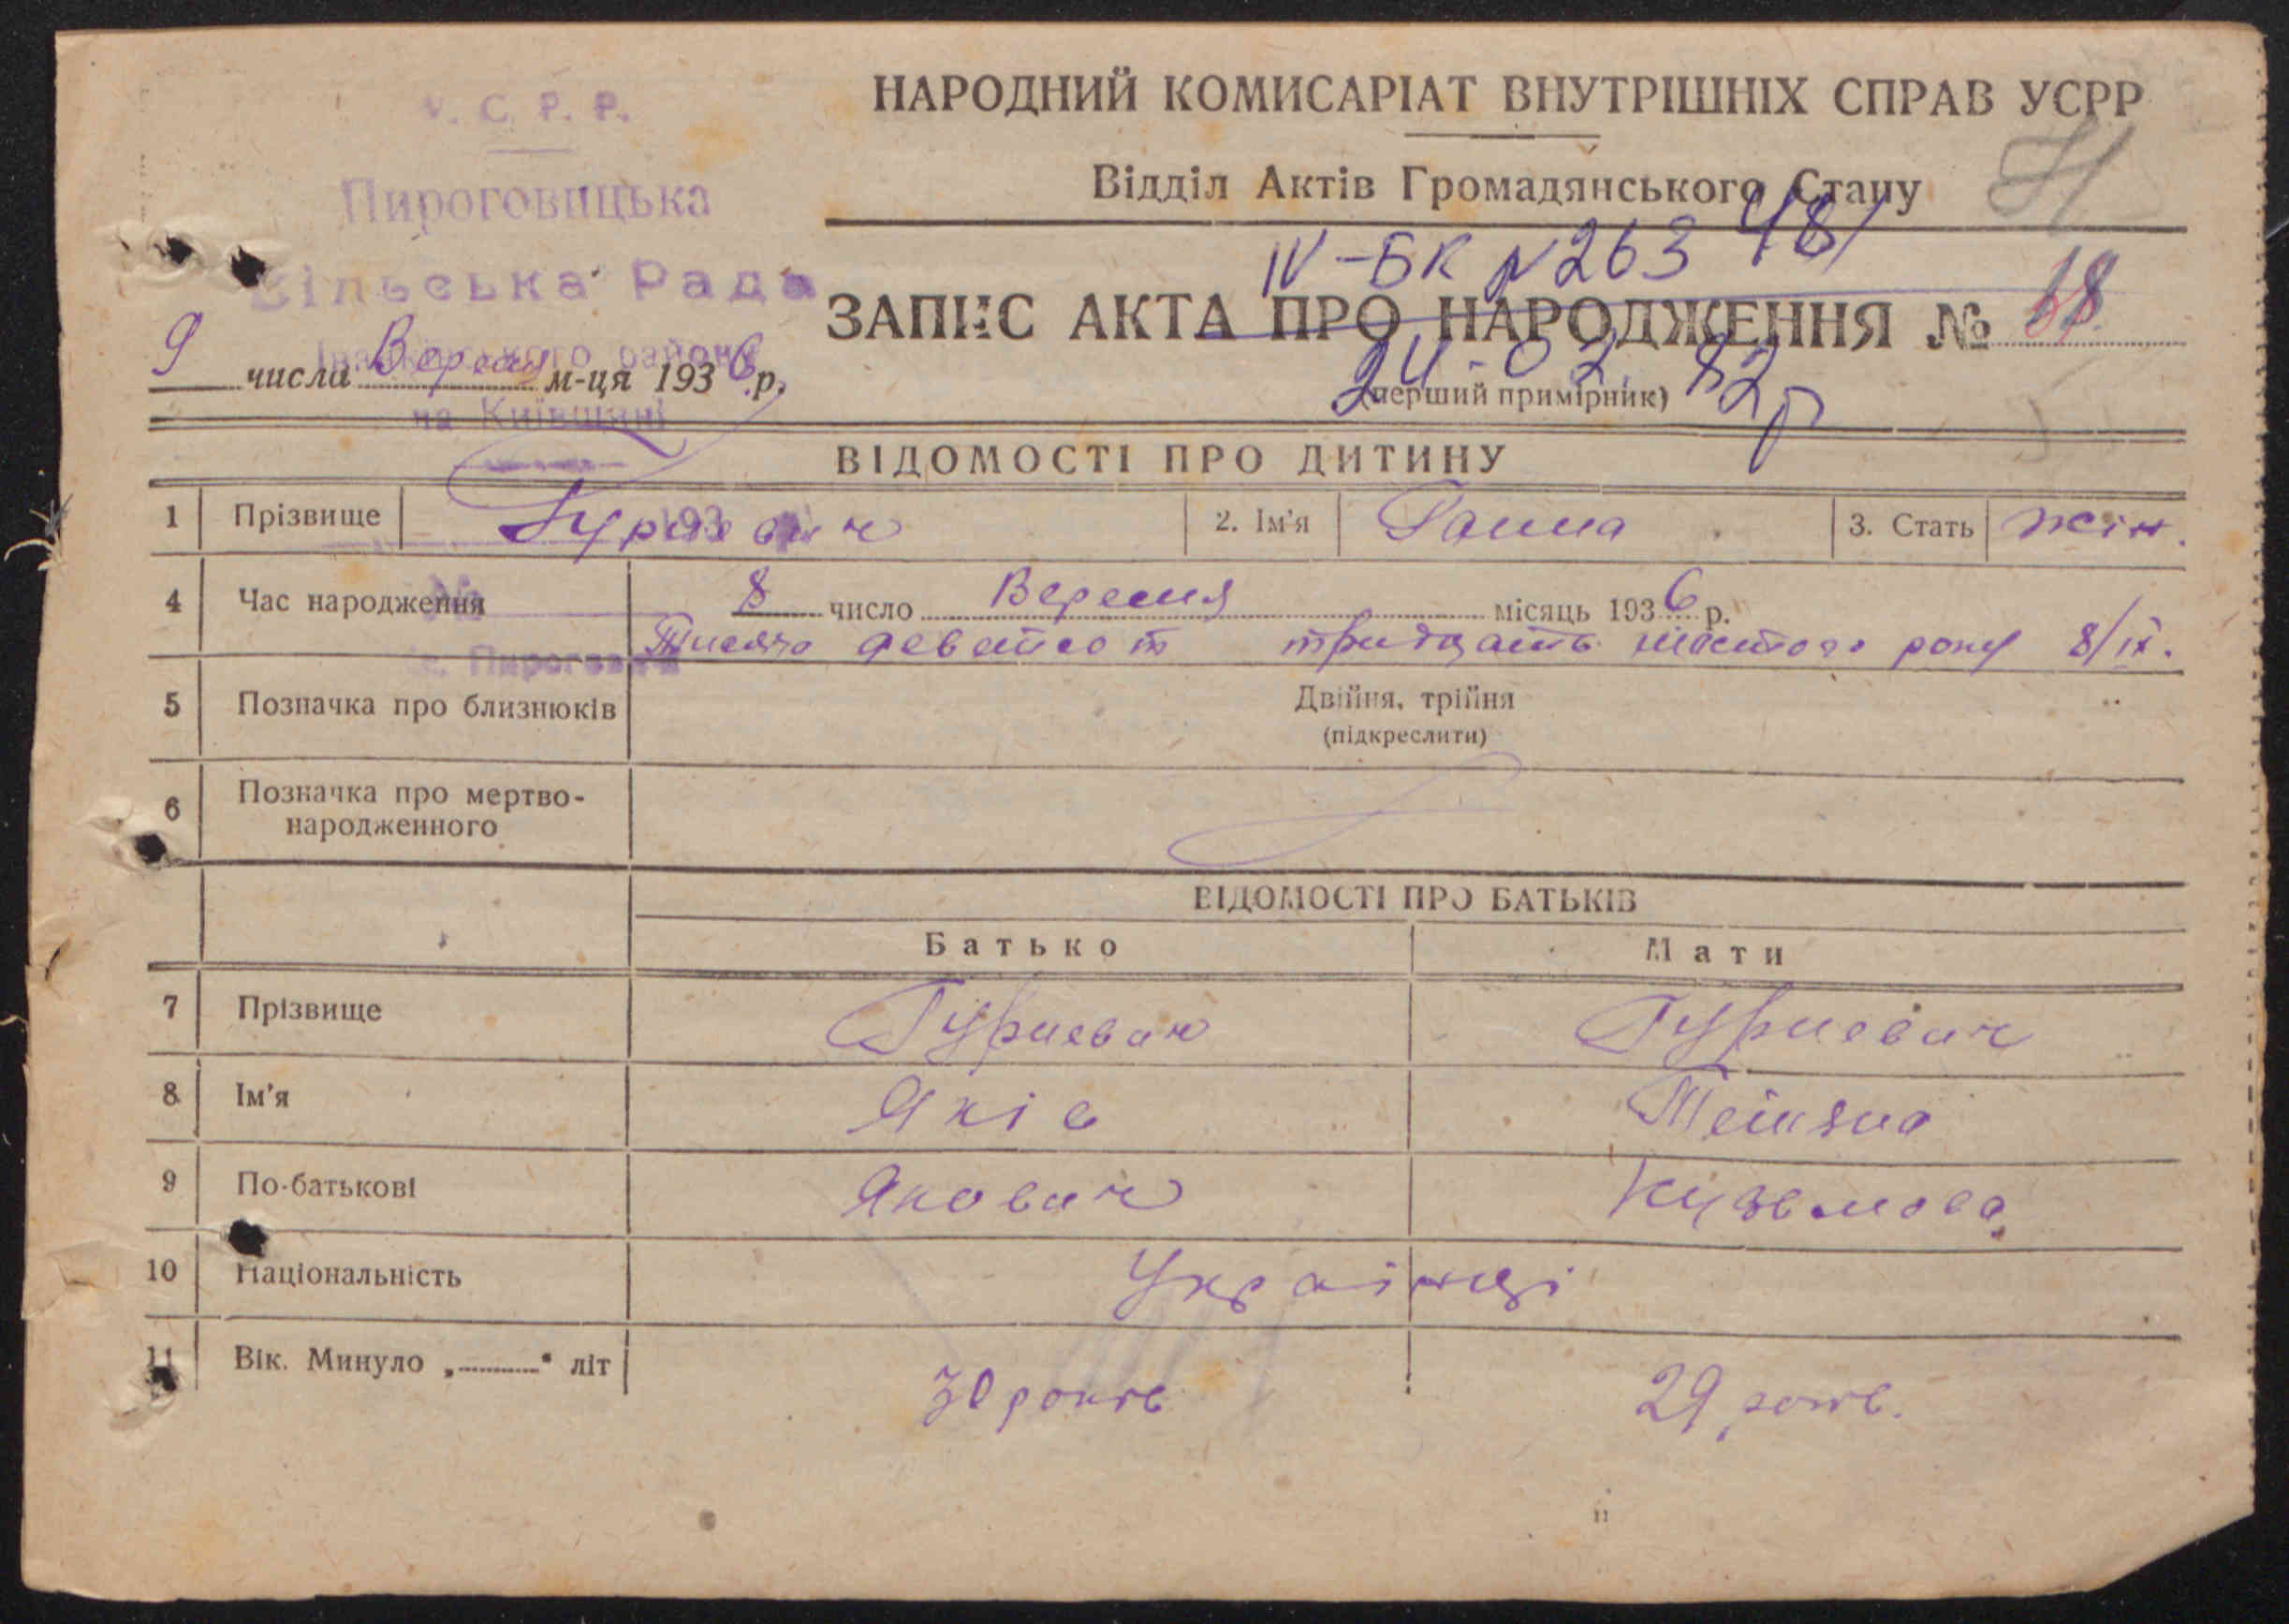 У. С. Р. Р.
Пироговицька
Сільська Рада
Іванківського району
на Київщині
193
№
с. Пироговичі
НАРОДНИЙ КОМИСАРІАТ ВНУТРІШНІХ СПРАВ УСРР
Відділ Актів Громадянського Стану
IV-БК N 263 481
ЗАПИС АКТА ПРО НАРОДЖЕННЯ № 68
24-02. 82р
(перший примірник)
9 числа Вересня м-ця 1936 р.
ВІДОМОСТІ ПРО ДИТИНУ
1 Прізвище Гуриевич 2. Ім'я Ганна 3. Стать жін.
4 Час народження 8 число Вересня місяць 1936 р.
Тисяча девятсот тридцать шостого року 8/IX.
5 Позначка про близнюків Двійня, трійня
(підкреслити)
6 Позначка про мертво-
народженного
ВІДОМОСТІ ПРО БАТЬКІВ
Батько Мати
7 Прізвище Гуриевич Гуриевич
8 Ім'я Яків Тетяна
9 По-батькові Якович Кузьмова
10 Національність Українці
11 Вік. Минуло „ " літ 30 років 29 років.
11